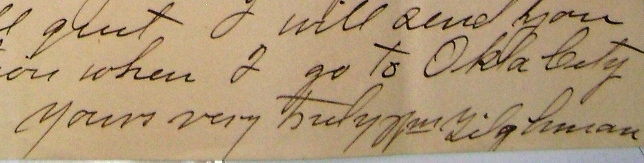 ll quit I will send you
ion when I go to Okla City
yours very truly Wm Tilghman